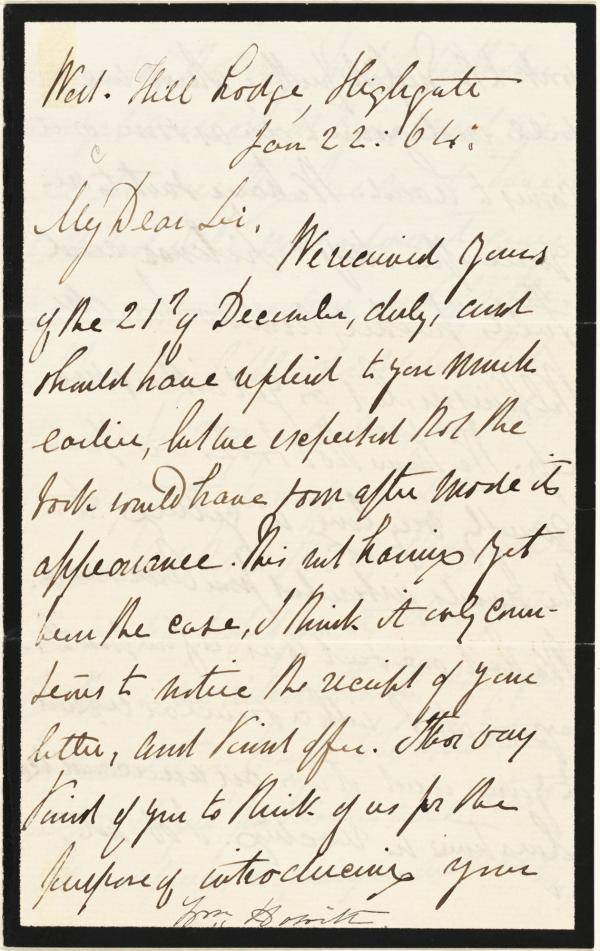 West. Hill Lodge, Highgate
Jan 22: 64:
My Dear Sir,
We received yours
of the 21st of December, duly, and
should have replied to you much
earlier, but we expected that the
book would have soon after made its
appearance. This not having yet
been the case, I think it only cour-
teous to notice the receipt of your
letter, and kind offer. It was very
kind of you to think of us for the
purpose of introducing your
Wm. Howitt.